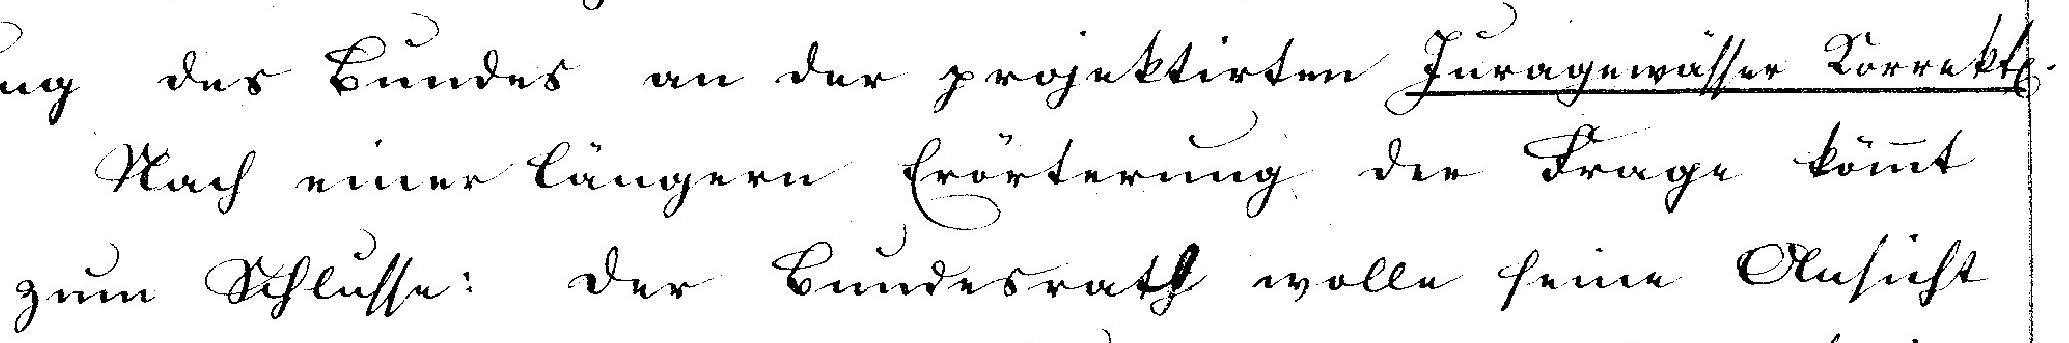 ng des Bundes an der projektirten Juragewässer Korrekt.
Nach einer längern Erörterung der Frage kömt
zum Schlusse: der Bundesrath wolle seine Ansicht